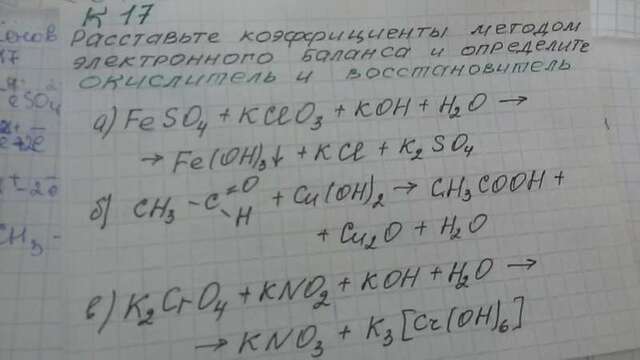 К 17
Расставьте коэффициенты методом
электронного баланса и определите
окислитель и восстановитель
а) FeSO₄ + KClO₃ + KOH + H₂O →
→ Fe(OH)₃↓ + KCl + K₂SO₄
б) CH₃ - C =O - H + Cu(OH)₂ → CH₃COOH +
+ Cu₂O + H₂O
в) K₂CrO₄ + KNO₂ + KOH + H₂O →
→ KNO₃ + K₃[Cr(OH)₆]